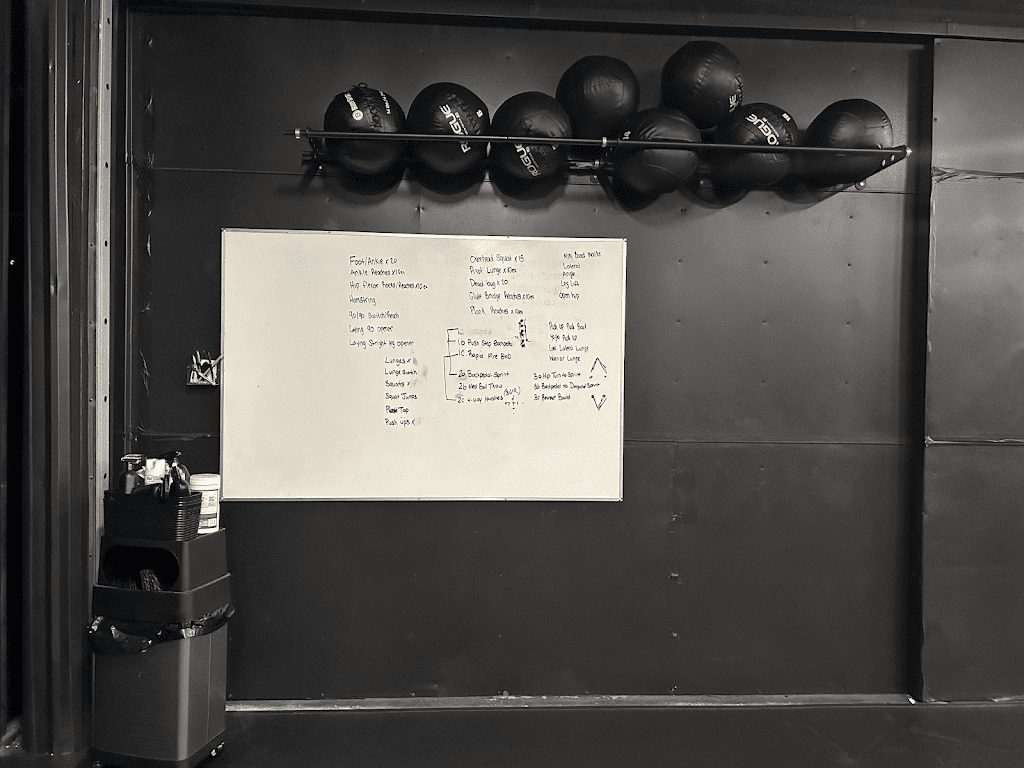 ROGUE
ROGUE
ROGUE
Foot/Ankle x 20
Ankle Reaches x10
Hip Flexor Rocks/Reaches x10
Hamstring
90/90 Switch/Reach
Laying 90 opener
Laying Straight leg opener
Lunges x
Lunge Switch
Squats x
Squat Jumps
Plank Tap
Push ups x
Overhead Squat x 15
Pivot Lunge x10
Dead bug x 20
Glute Bridge Reaches x10
Plank Reaches x
Mini Band
Lateral
Angle
Leg Lift
Open hip
1b Push Step Backpedal
1c Rapid Fire
2a Backpedal Sprint
2b Med Ball Throw
2c 4-way Hurdles
Pick Up
Low Lateral Lunge
Warrior Lunge
3a Hip Turn to Sprint
3b Backpedal to Diagonal Sprint
3c Bound